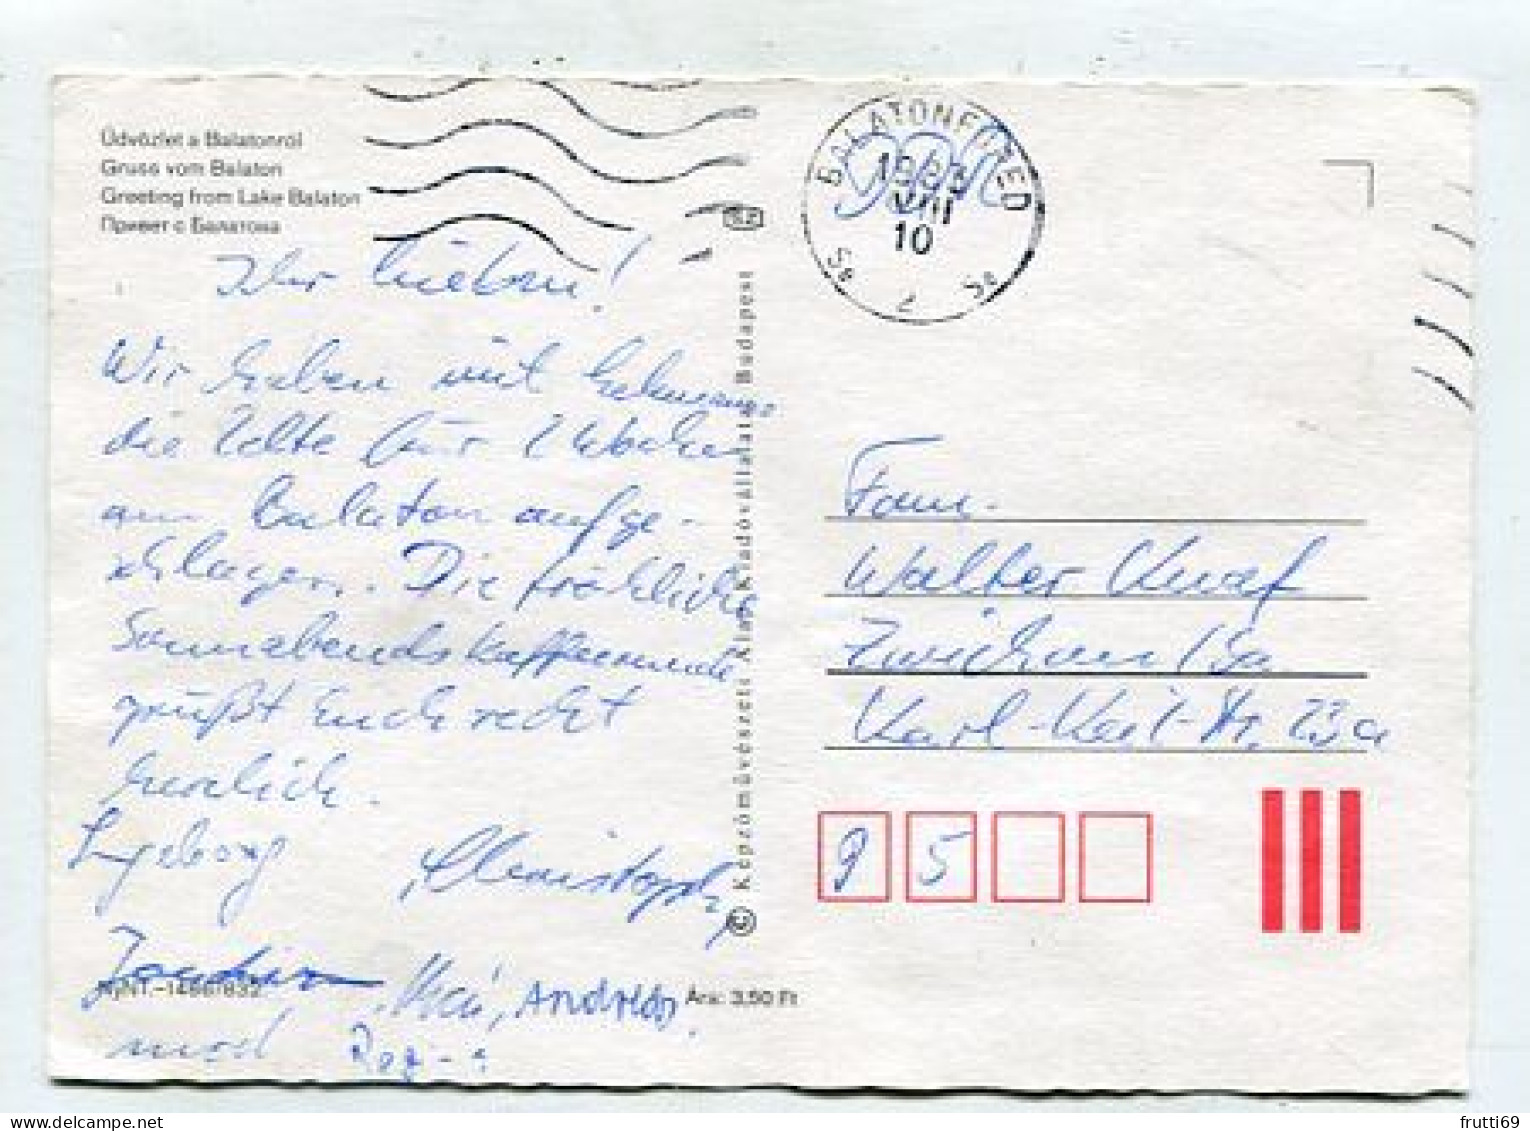 Üdvözlet a Balatonról
Gruss vom Balaton
Greeting from Lake Balaton
Привет с Балатона
Ihr Lieben!
Wir haben mit Lehmanns
die Zelte für 2 Wochen
am Balaton aufge-
schlagen. Die fröhliche
Sonnabendskaffeerunde
grüßt Euch recht
herzlich.
Ingeborg
Christoph,
Joachim
Kai, Andreas,
und
NyNT.-
Ára: 3,50 Ft
© Képzőművészeti Alap Kiadóvállalata, Budapest
BALATONFÜRED
1983
VIII
10
7
DDR
Fam.
Walter Knaf
Zwickau/Sa
Karl-Keil-Str. 23a
9 5
frutti69